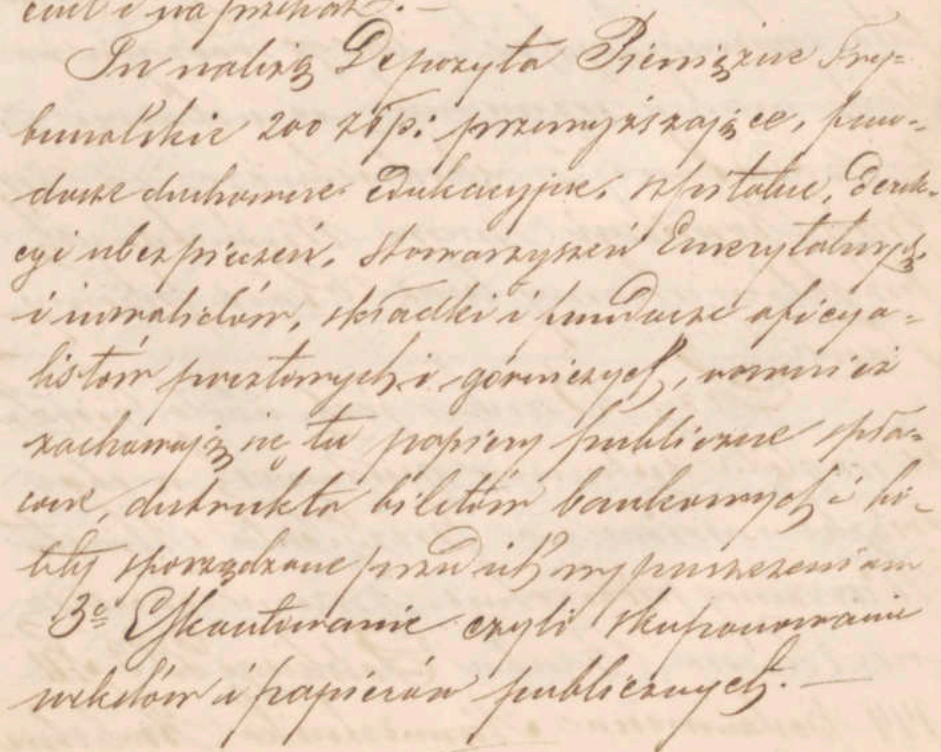 i na przekaz. —
Tu należą Depozyta Pieniężne Try-
bunalskie 200 złp: przewyższające, fun-
dusze duchowne Edukacyjne, szpitalne, Derek-
cyi ubezpieczeń, Stowarzyszeń Emerytalnych
i inwalidów, składki i fundusze oficya-
listów pocztowych i górniczych, również
zachowują się tu papiery publiczne spła-
cone, dubrukta biletów bankowych i bi-
lety sporządzone przed ich wypuszczeniem
3e Eskontowanie czyli skuponowanie
wekslów i papierów publicznych. —